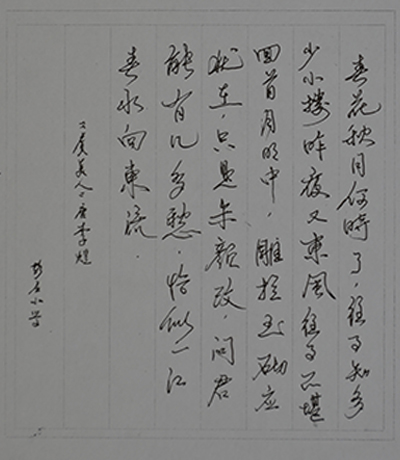 春花秋月何時了，往事知多
少小樓昨夜又東風往事不堪
回首月明中，雕栏玉砌应
犹在，只是朱颜改，问君
能有几多愁，恰似一江
春水向東流．
虞美人 唐李煜